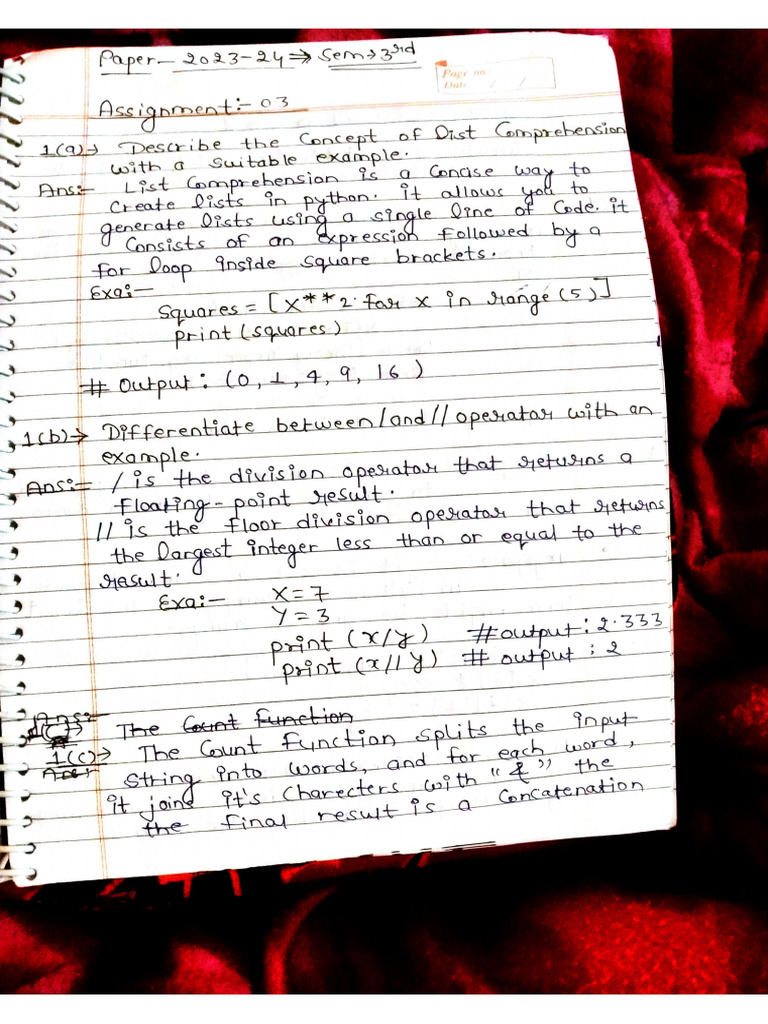 Paper - 2023-24 ⇒ Sem → 3rd
Page no
Date / /
Assignment:- 03
1(a)→ Describe the Concept of List Comprehension
with a suitable example.
Ans:- List Comprehension is a Concise way to
Create lists in python. it allows you to
generate lists using a single line of Code. it
Consists of an expression followed by a
for loop inside square brackets.
Exa:-
Squares = [x**2 for x in range (5)]
print (squares)
# Output : (0, 1, 4, 9, 16)
1(b)→ Differentiate between / and // operator with an
example.
Ans:- / is the division operator that returns a
floating-point result.
// is the floor division operator that returns
the largest integer less than or equal to the
result.
Exa:- X = 7
Y = 3
print (x/y) # output : 2.333
print (x// y) # output : 2
Ans:-
The Count Function
1(c)→ The Count Function splits the input
Ans:- String into words, and for each word,
it joins it's Charecters with "&" the
the final result is a Concatenation